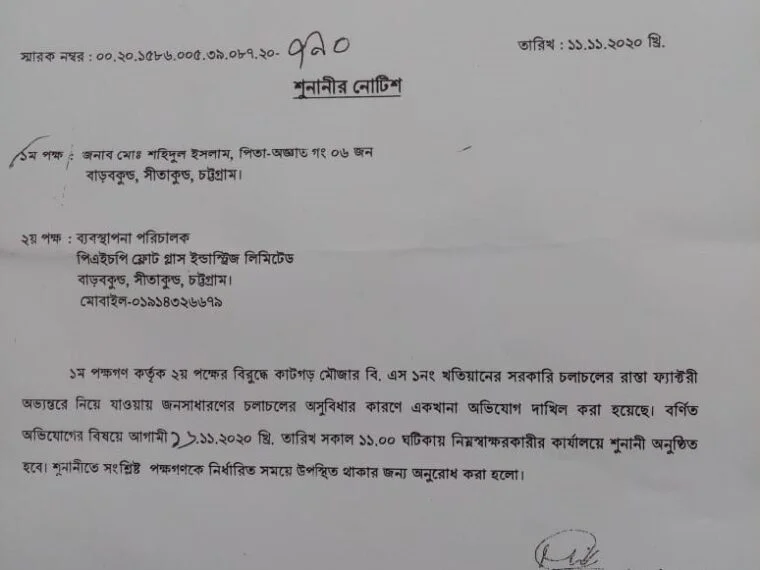 স্মারক নম্বর : ০০.২০.১৫৮৬.০০৫.৩৯.০৮৭.২০- তারিখ : ১১.১১.২০২০ খ্রি.
শুনানীর নোটিশ
১ম পক্ষ : জনাব মোঃ শহিদুল ইসলাম, পিতা-অজ্ঞাত গং ০৬ জন
বাড়বকুন্ড, সীতাকুন্ড, চট্টগ্রাম।
২য় পক্ষ : ব্যবস্থাপনা পরিচালক
পিএইচপি ফ্লোট গ্লাস ইন্ডাস্ট্রিজ লিমিটেড
বাড়বকুন্ড, সীতাকুন্ড, চট্টগ্রাম।
মোবাইল-০১৯১৪৩২৬৬৭৯
১ম পক্ষগণ কর্তৃক ২য় পক্ষের বিরুদ্ধে কাটগড় মৌজার বি. এস ১নং খতিয়ানের সরকারি চলাচলের রাস্তা ফ্যাক্টরী
অভ্যন্তরে নিয়ে যাওয়ায় জনসাধারণের চলাচলের অসুবিধার কারণে একখানা অভিযোগ দাখিল করা হয়েছে। বর্ণিত
অভিযোগের বিষয়ে আগামী .১১.২০২০ খ্রি. তারিখ সকাল ১১.০০ ঘটিকায় নিম্নস্বাক্ষরকারীর কার্যালয়ে শুনানী অনুষ্ঠিত
হবে। শুনানীতে সংশ্লিষ্ট পক্ষগণকে নির্ধারিত সময়ে উপস্থিত থাকার জন্য অনুরোধ করা হলো।